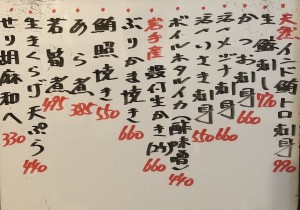 天然インド鮪トロ刺身 990
生鮪刺し 770
かつお刺身 660
活〆メジナ刺身 660
活〆いさき刺身 550
ボイルホタルイカ(酢味噌) 440
岩手産殻付生かき(2ヶ) 660
ぶりかま焼き 660
鮪照焼き 550
あら煮 385
若筍煮 495
生きくらげ天ぷら 440
せり胡麻和へ 330